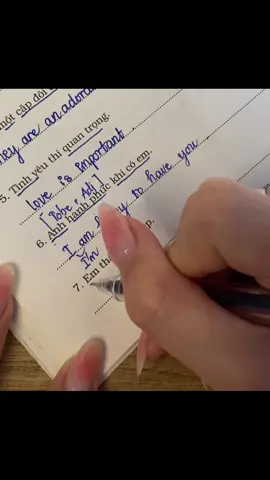 một cặp đôi
they are an
5. Tình yêu thì quan trọng.
love is important
[ Tobe + Adj ]
6. Anh hạnh phúc khi có em.
I am to have you
I'm
7. Em